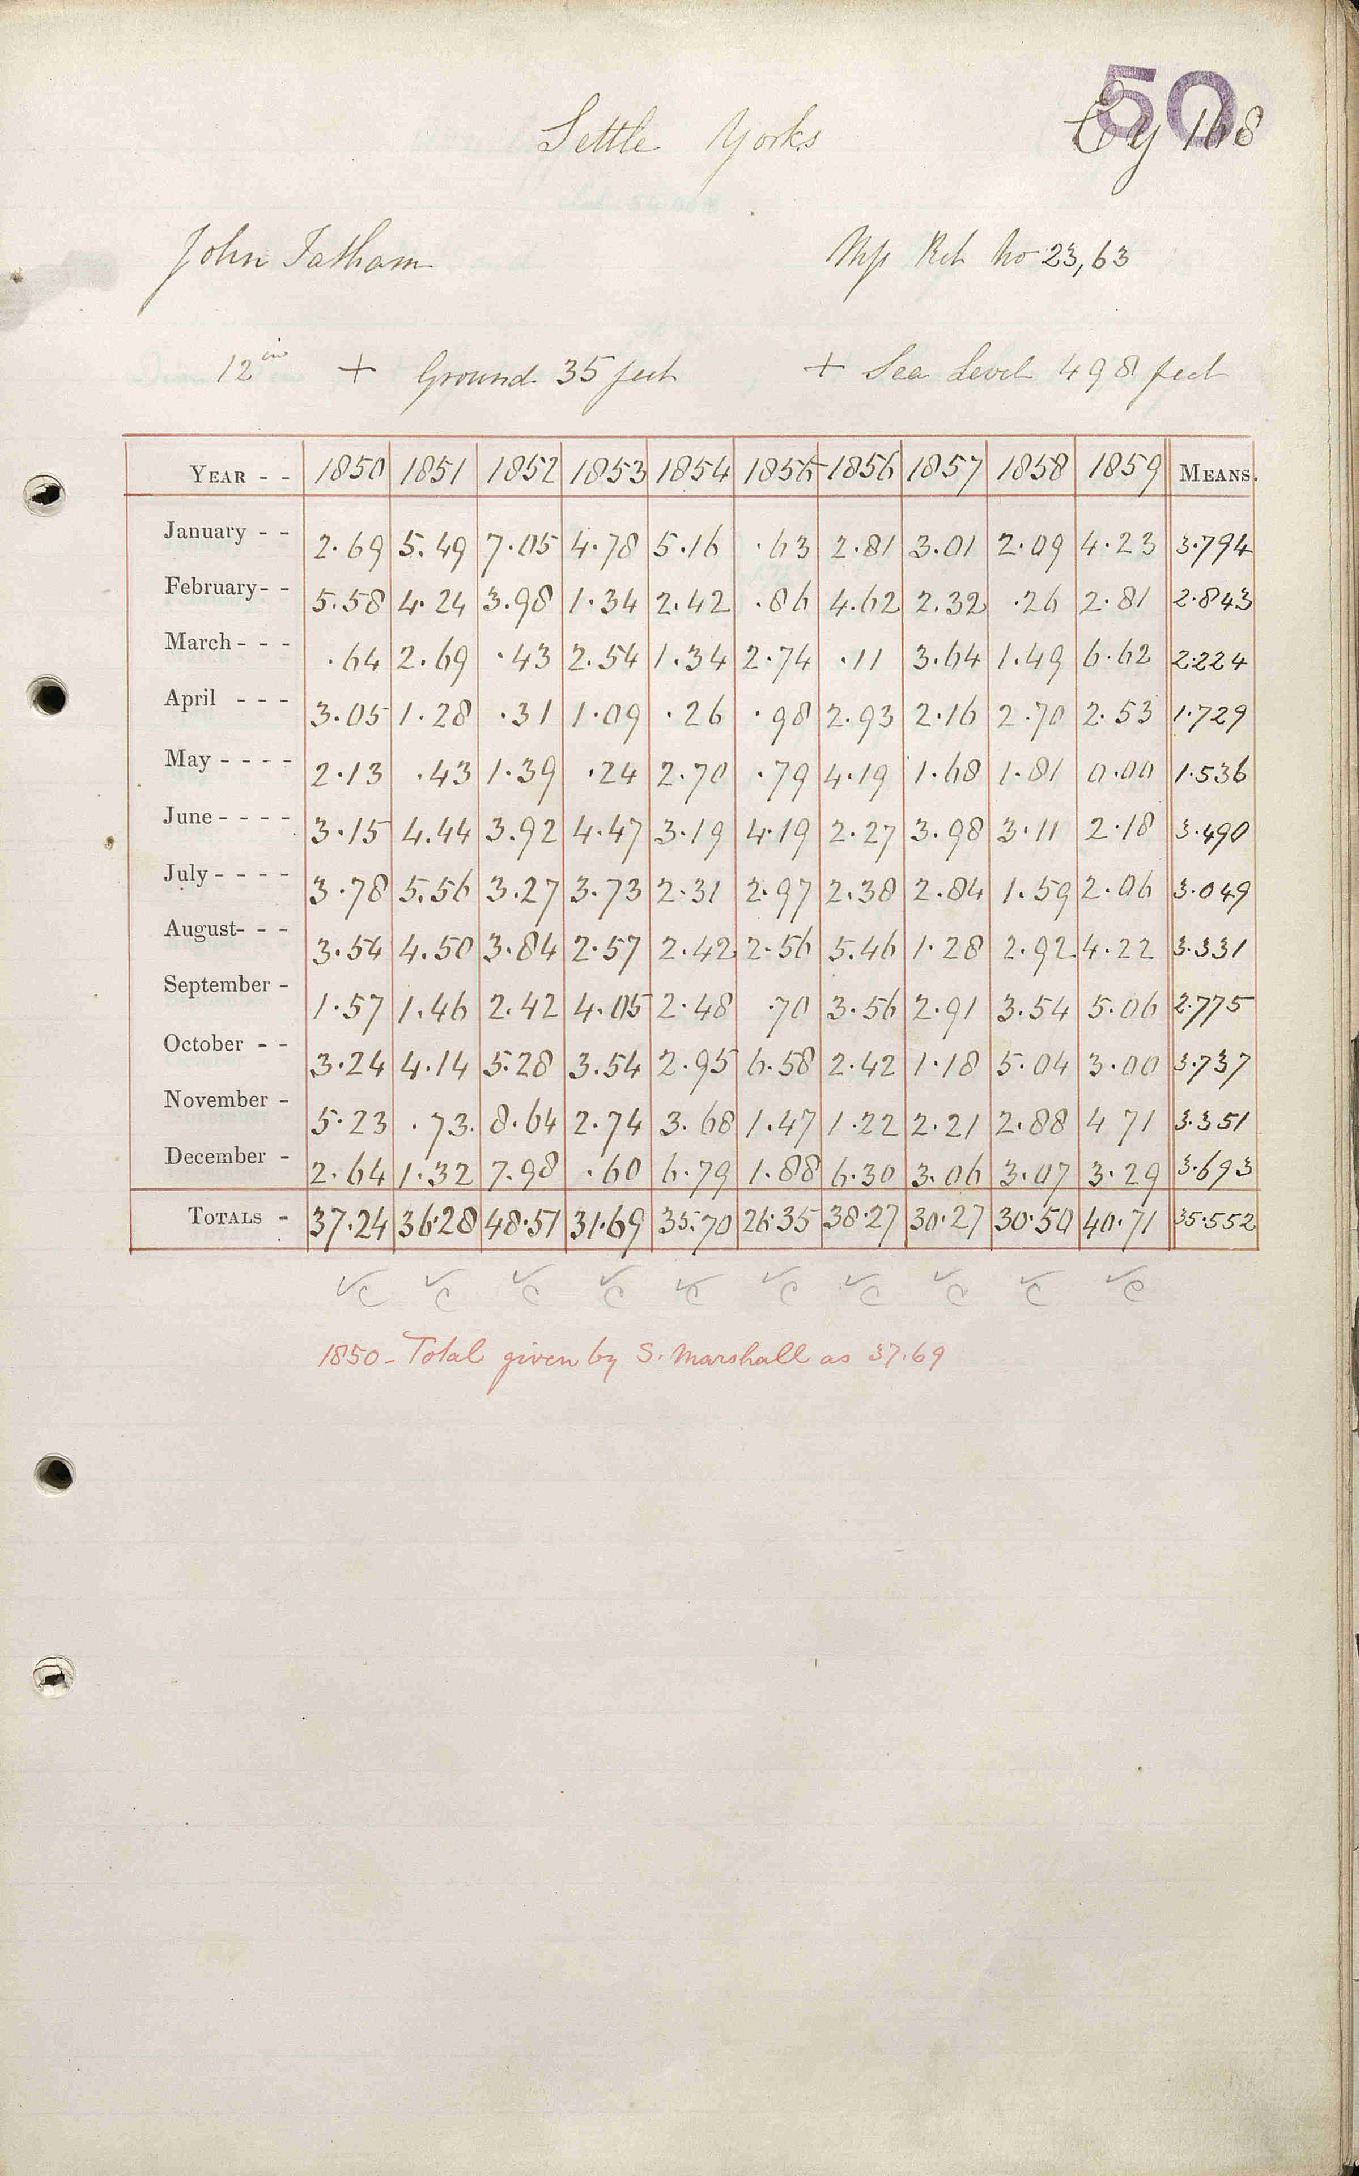 50
Settle Yorks
Cy 168
John Tatham
Mps Ret No 23,63
12in + Ground 35 feet + Sea Level 498 feet
YEAR - - 1850 1851 1852 1853 1854 1855 1856 1857 1858 1859 MEANS.
January - - 2.69 5.49 7.05 4.78 5.16 .63 2.81 3.01 2.09 4.23 3.794
February- - 5.58 4.24 3.98 1.34 2.42 .86 4.62 2.32 .26 2.81 2.843
March - - - .64 2.69 .43 2.54 1.34 2.74 .11 3.64 1.49 6.62 2.224
April - - - 3.05 1.28 .31 1.09 .26 .98 2.93 2.16 2.70 2.53 1.729
May - - - - 2.13 .43 1.39 .24 2.70 .79 4.19 1.68 1.81 0.00 1.536
June - - - - 3.15 4.44 3.92 4.47 3.19 4.19 2.27 3.98 3.11 2.18 3.490
July - - - - 3.78 5.56 3.27 3.73 2.31 2.97 2.38 2.84 1.59 2.06 3.049
August- - - 3.54 4.50 3.84 2.57 2.42 2.56 5.46 1.28 2.92 4.22 3.331
September - 1.57 1.46 2.42 4.05 2.48 .70 3.56 2.91 3.54 5.06 2.775
October - - 3.24 4.14 5.28 3.54 2.95 6.58 2.42 1.18 5.04 3.00 3.737
November - 5.23 .73 8.64 2.74 3.68 1.47 1.22 2.21 2.88 4 71 3.351
December - 2.64 1.32 7.98 .60 6.79 1.88 6.30 3.06 3.07 3.29 3.693
TOTALS - 37.24 36.28 48.51 31.69 35.70 26.35 38.27 30.27 30.50 40.71 35.552
✓c ✓c ✓c ✓c ✓c ✓c ✓c ✓c ✓c ✓c
1850 - Total given by S. Marshall as 37.69